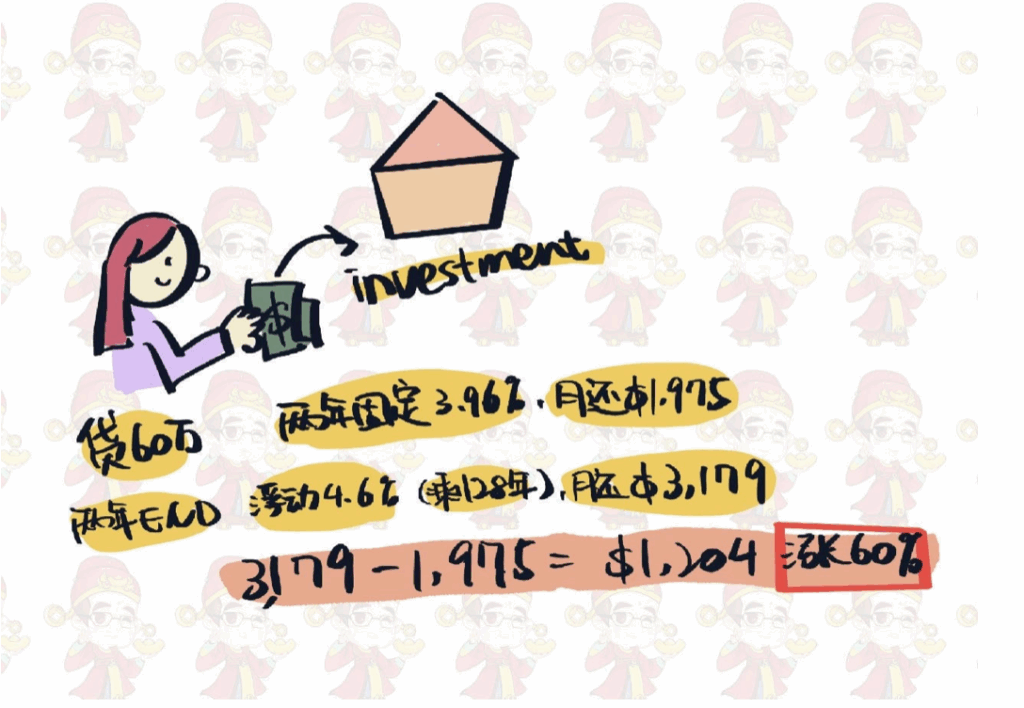 $
investment
贷60万 两年固定3.96%. 月还$1.975
两年END 浮动4.6% (剩28年), 月还$3,179
3,179-1,975=$1,204 涨60%